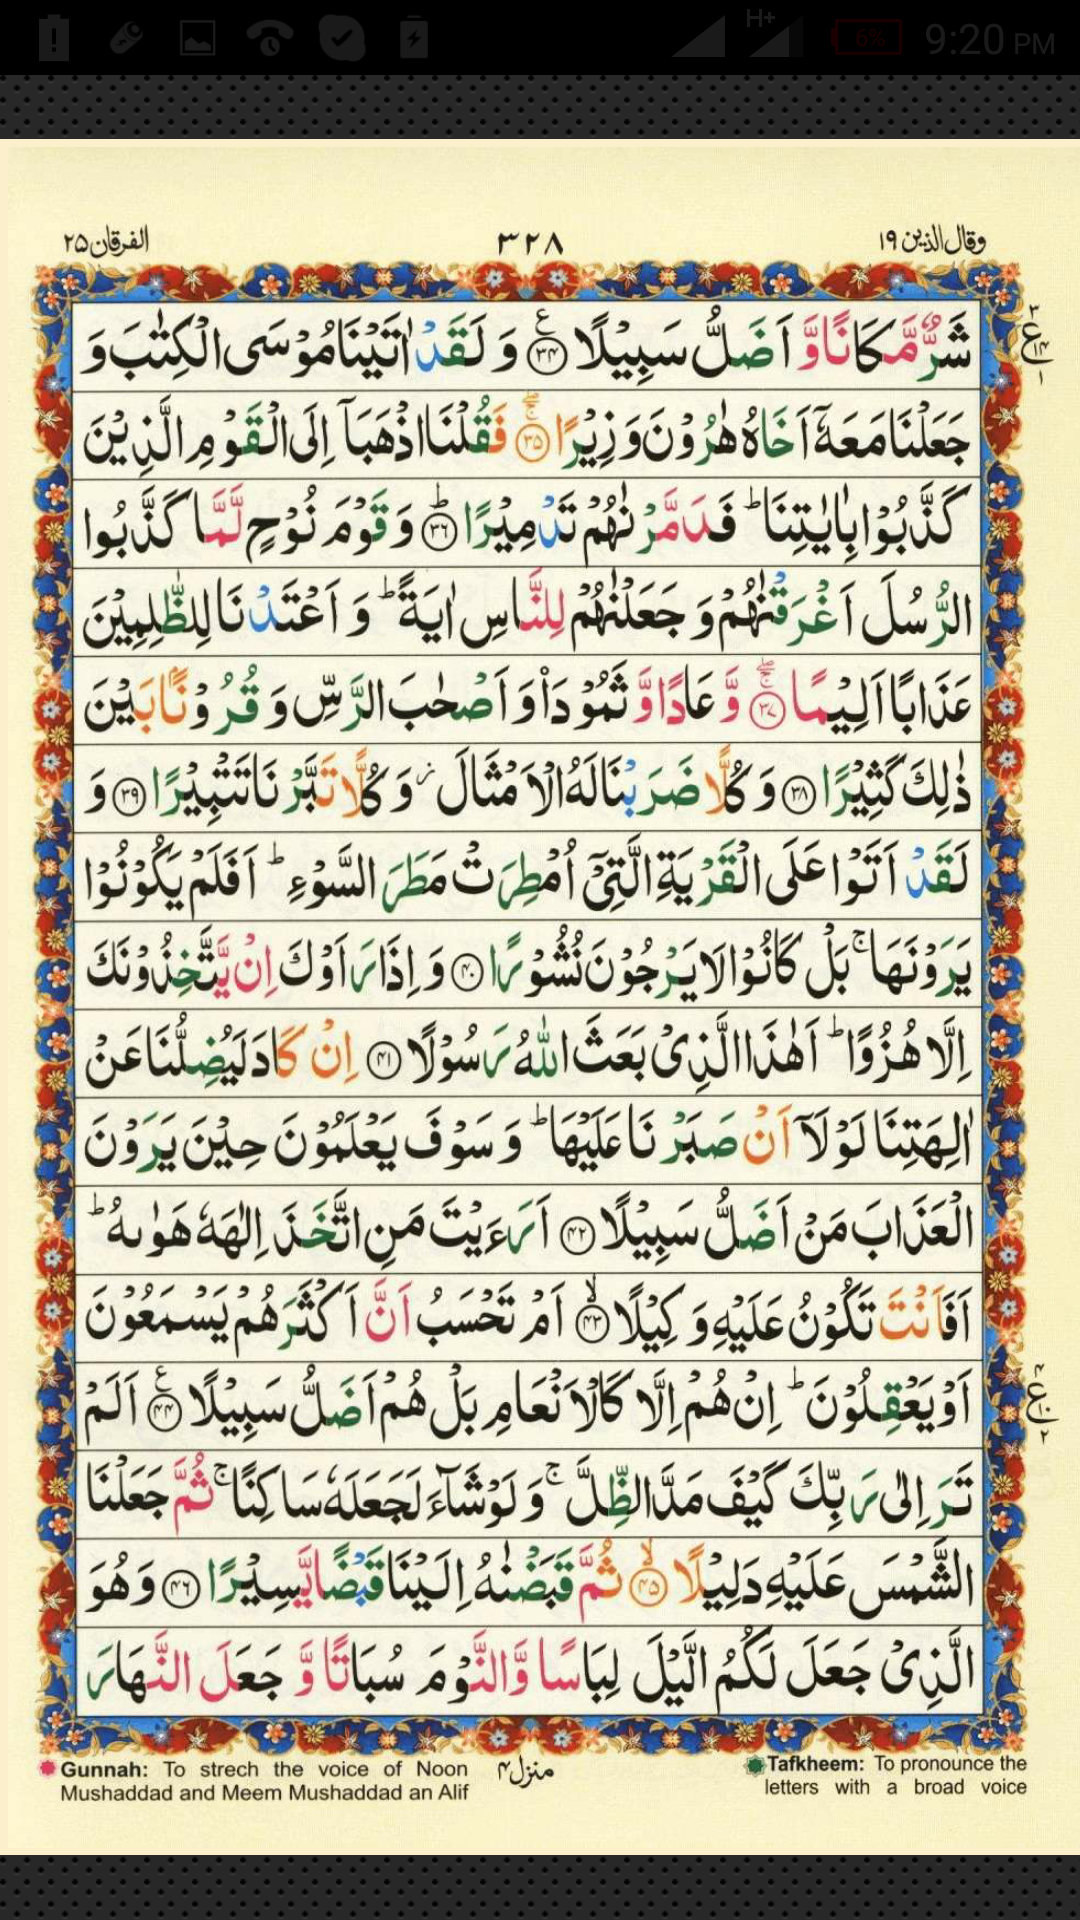 H+
6%
9:20 PM
وقال الذين ١٩
٣٢٨
الفرقان ٢٥
شَرٌّ مَّكَانًا وَّ اَضَلُّ سَبِيْلًا ﴿۳۴﴾ وَ لَقَدْ اٰتَيْنَا مُوْسَى الْكِتٰبَ وَ
جَعَلْنَا مَعَهٗۤ اَخَاهُ هٰرُوْنَ وَزِيْرًا ﴿۳۵﴾ فَقُلْنَا اذْهَبَاۤ اِلَى الْقَوْمِ الَّذِيْنَ
كَذَّبُوْا بِاٰيٰتِنَا ؕ فَدَمَّرْنٰهُمْ تَدْمِيْرًا ﴿۳۶﴾ وَ قَوْمَ نُوْحٍ لَّمَّا كَذَّبُوا
الرُّسُلَ اَغْرَقْنٰهُمْ وَ جَعَلْنٰهُمْ لِلنَّاسِ اٰيَةً ؕ وَ اَعْتَدْنَا لِلظّٰلِمِيْنَ
عَذَابًا اَلِيْمًا ﴿۳۷﴾ وَّ عَادًا وَّ ثَمُوْدَا۟ وَ اَصْحٰبَ الرَّسِّ وَ قُرُوْنًۢا بَيْنَ
ذٰلِكَ كَثِيْرًا ﴿۳۸﴾ وَ كُلًّا ضَرَبْنَا لَهُ الْاَمْثَالَ ؗ وَ كُلًّا تَبَّرْنَا تَتْبِيْرًا ﴿۳۹﴾ وَ
لَقَدْ اَتَوْا عَلَى الْقَرْيَةِ الَّتِيْۤ اُمْطِرَتْ مَطَرَ السَّوْءِ ؕ اَفَلَمْ يَكُوْنُوْا
يَرَوْنَهَا ۚ بَلْ كَانُوْا لَا يَرْجُوْنَ نُشُوْرًا ﴿۴۰﴾ وَ اِذَا رَاَوْكَ اِنْ يَّتَّخِذُوْنَكَ
اِلَّا هُزُوًا ؕ اَهٰذَا الَّذِيْ بَعَثَ اللّٰهُ رَسُوْلًا ﴿۴۱﴾ اِنْ كَادَ لَيُضِلُّنَا عَنْ
اٰلِهَتِنَا لَوْ لَاۤ اَنْ صَبَرْنَا عَلَيْهَا ؕ وَ سَوْفَ يَعْلَمُوْنَ حِيْنَ يَرَوْنَ
الْعَذَابَ مَنْ اَضَلُّ سَبِيْلًا ﴿۴۲﴾ اَرَءَيْتَ مَنِ اتَّخَذَ اِلٰهَهٗ هَوٰىهُ ؕ
اَفَاَنْتَ تَكُوْنُ عَلَيْهِ وَكِيْلًا ﴿۴۳﴾ اَمْ تَحْسَبُ اَنَّ اَكْثَرَهُمْ يَسْمَعُوْنَ
اَوْ يَعْقِلُوْنَ ؕ اِنْ هُمْ اِلَّا كَالْاَنْعَامِ بَلْ هُمْ اَضَلُّ سَبِيْلًا ﴿۴۴﴾ اَلَمْ
تَرَ اِلٰى رَبِّكَ كَيْفَ مَدَّ الظِّلَّ ۚ وَ لَوْ شَآءَ لَجَعَلَهٗ سَاكِنًا ۚ ثُمَّ جَعَلْنَا
الشَّمْسَ عَلَيْهِ دَلِيْلًا ﴿۴۵﴾ ثُمَّ قَبَضْنٰهُ اِلَيْنَا قَبْضًا يَّسِيْرًا ﴿۴۶﴾ وَ هُوَ
الَّذِيْ جَعَلَ لَكُمُ الَّيْلَ لِبَاسًا وَّ النَّوْمَ سُبَاتًا وَّ جَعَلَ النَّهَارَ
منزل ۴
Gunnah: To strech the voice of Noon
Mushaddad and Meem Mushaddad an Alif
Tafkheem: To pronounce the
letters with a broad voice